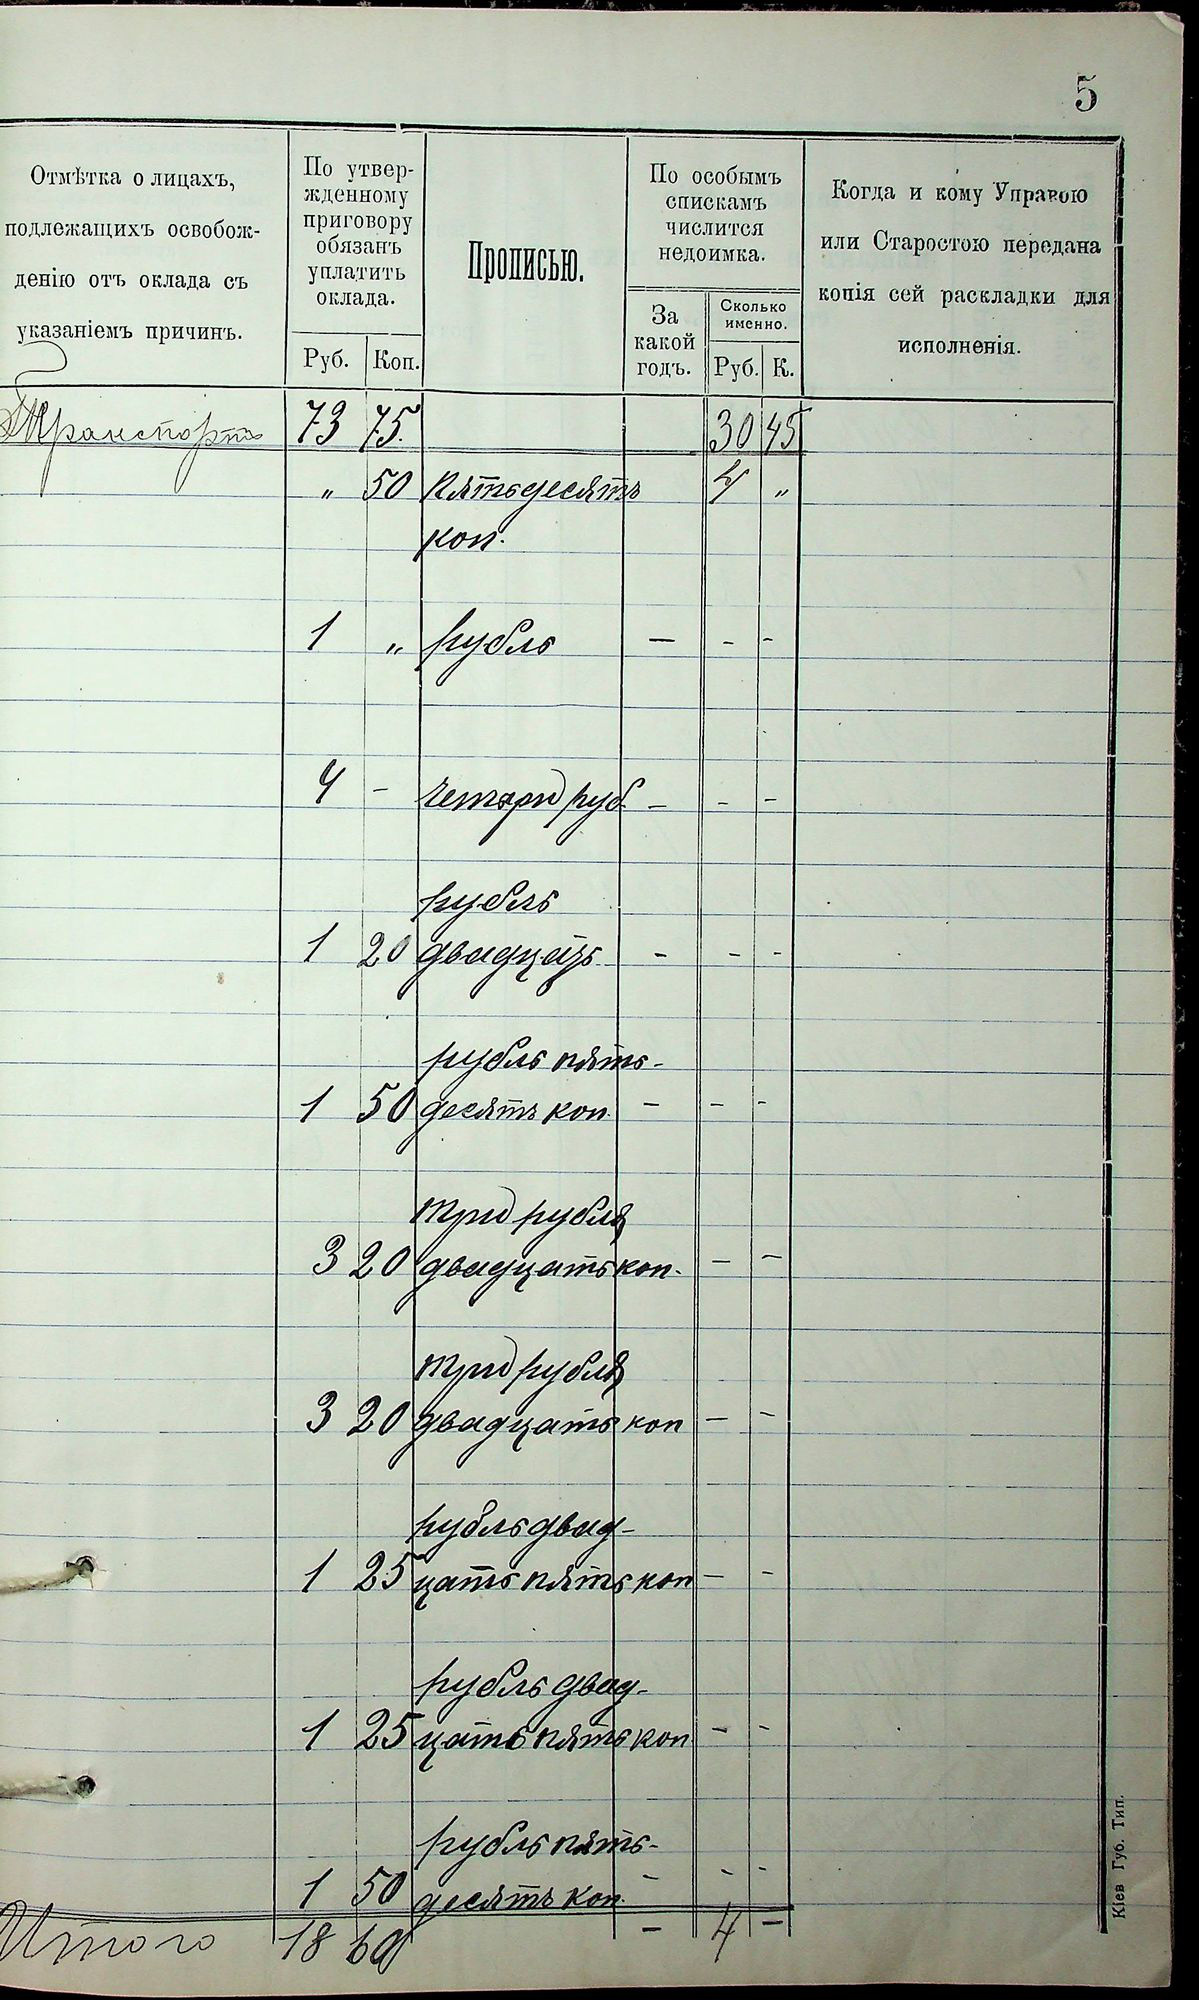 5
Отмѣтка о лицахъ,
подлежащихъ освобож-
денію отъ оклада съ
указаніемъ причинъ.
По утвер-
жденному
приговору
обязанъ
уплатить
оклада.
Руб. Коп.
Прописью.
По особымъ
спискамъ
числится
недоимка.
За
какой
годъ.
Сколько
именно.
Руб. К.
Когда и кому Управою
или Старостою передана
копія сей раскладки для
исполненія.
Транспортъ 73 75. 30 45
„ 50 Пятьдесятъ 4 „
коп.
1 „ рубль — - -
4 - четыри руб. - - -
рубль
1 20 двадцать - - -
рубль пять-
1 50 десятъ коп. - - -
три рубля
3 20 двадцать коп. - -
три рубля
3 20 двадцать коп - -
рубль двад-
1 25 цать пять коп - -
рубль двад-
1 25 цать пять коп - -
рубль пять-
1 50 десятъ коп. - - -
Итого 18 60 - 4 -
Кіев Губ. Тип.